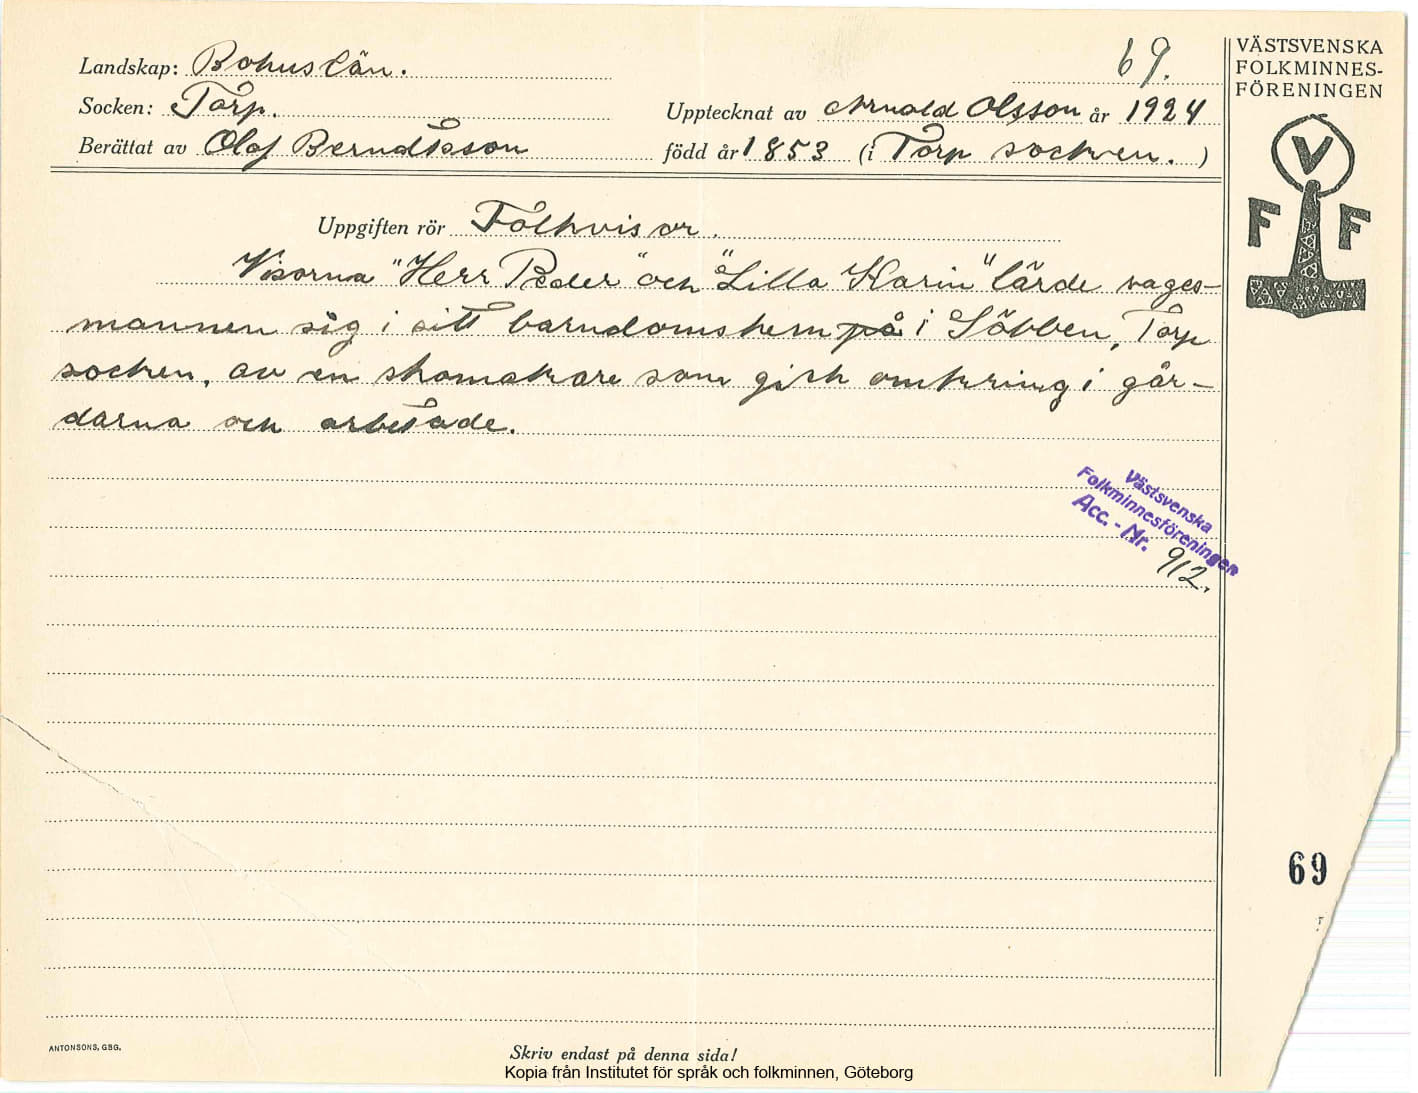 Landskap: Bohuslän.
69.
Socken: Torp.
Upptecknat av Arnold Olsson år 1924
Berättat av Olof Berndtsson född år 1853 (i Torp socken.)
VÄSTSVENSKA
FOLKMINNES-
FÖRENINGEN
V
F F
Uppgiften rör Folkvisor.
Visorna "Herr Peder" och "Lilla Karin" lärde sages-
mannen sig i sitt barndomshem på i Söbben, Torp
socken, av en skomakare som gick omkring i går-
darna och arbetade.
Västsvenska
Folkminnesföreningen
Acc. - Nr. 912.
69
ANTONSONS, GBG.
Skriv endast på denna sida!
Kopia från Institutet för språk och folkminnen, Göteborg